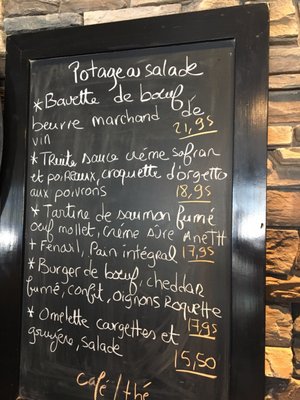 Potage ou salade
* Bavette de bœuf,
beurre marchand de
vin 21,95
* Truite sauce crème safran
et poireaux, croquette d'orgetto
aux poivrons 18,95
* Tartine de saumon fumé
œuf mollet, crème sûre AnetH
+ Fenouil, Pain intégral 17,95
* Burger de bœuf, cheddar
fumé, confit, oignons Roquette
* Omelette courgettes et 17,95
gruyère, salade
15,50
café / thé